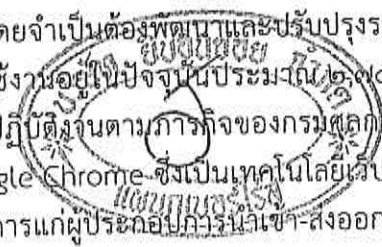 ดยจำเป็นต้องพัฒนาและปรับปรุงร
ช้งานอยู่ในปัจจุบันประมาณ
ปฏิบัติงานตามภารกิจของกรมศุลก
gle Chrome ซึ่งเป็นเทคโนโลยีเว็บ
การแก่ผู้ประกอบการนำเข้า-ส่งออก